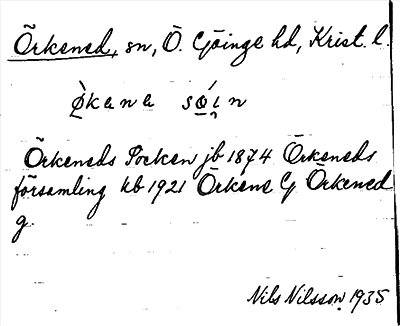 Örkened, sn, Ö. Göinge hd, Krist. l.
ø̀kena sǿın
Örkeneds Socken jb 1874 Örkeneds
församling kb 1921 Örkene G Örkened
g
Nils Nilsson 1935